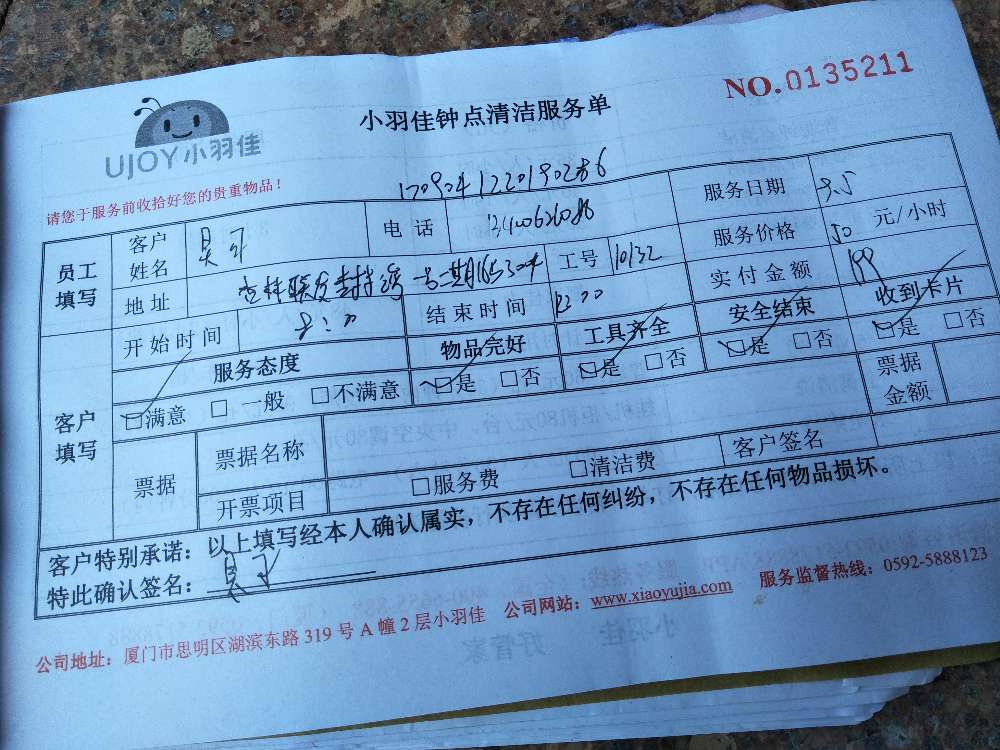 UJOY小羽佳
小羽佳钟点清洁服务单
NO.0135211
请您于服务前收拾好您的贵重物品！
员工填写
客户姓名
电话
服务日期 9.5
地址
工号 10132
服务价格 50 元/小时
开始时间 8:00
结束时间 12:00
实付金额 199
客户填写
服务态度 物品完好 工具齐全 安全结束 收到卡片
满意 □ 一般 □不满意 是 □否 是 □否 是 □否 是 □否
票据
票据名称
票据金额
开票项目 □服务费 □清洁费 客户签名
客户特别承诺：以上填写经本人确认属实，不存在任何纠纷，不存在任何物品损坏。
特此确认签名：
公司地址：厦门市思明区湖滨东路 319 号 A 幢 2 层小羽佳 公司网站：www.xiaoyujia.com 服务监督热线：0592-5888123